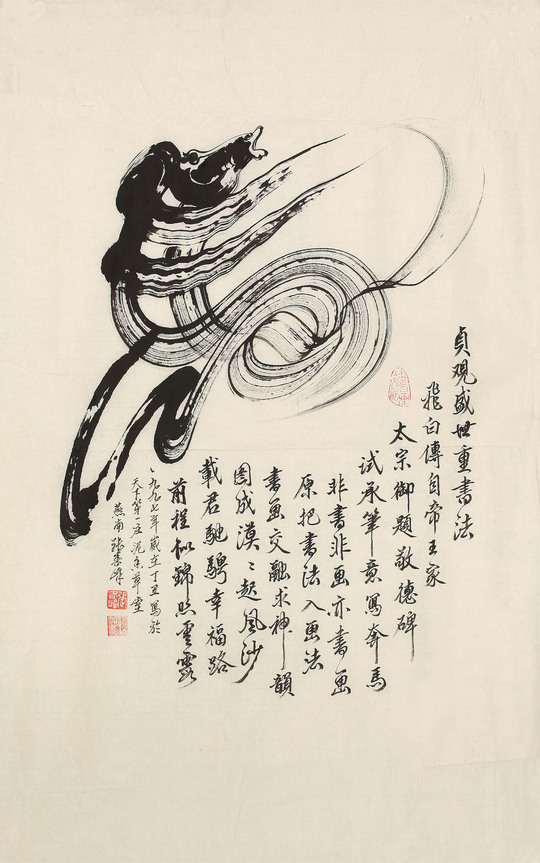 貞观盛世重書法
飛白傳自帝王家
太宗御題敬德碑
試承筆意寫奔馬
非書非画亦書画
原把書法入画法
書画交融求神韻
图成漠〻起風沙
載君馳騁幸福路
前程似錦照雲霞
一九九七年歲在丁丑寫於
天下第一庄泥香草堂
燕南